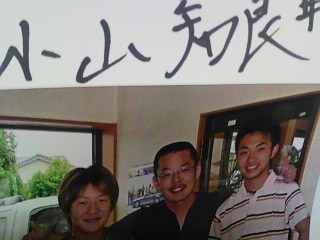 小山知良